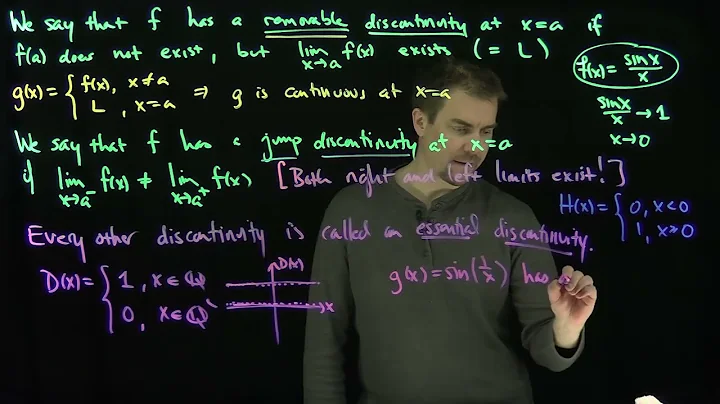 We say that f has a removable discontinuity at x=a if
f(a) does not exist, but lim x→a f(x) exists (= L)
f(x) = sin x / x
g(x) = { f(x), x≠a
L, x=a ⇒ g is continuous at x=a
sin x / x → 1
x→0
We say that f has a jump discontinuity at x=a
if lim x→a⁻ f(x) ≠ lim x→a⁺ f(x) [Both right and left limits exist!]
H(x) = { 0, x<0
1, x≥0
Every other discontinuity is called an essential discontinuity.
D(x) = { 1, x∈ℚ
0, x∈ℚ`
D(x)
x
g(x) = sin(1/x) has